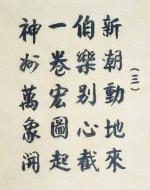 (三)
新潮動地來
伯樂別心裁
一卷宏圖起
神州萬象開